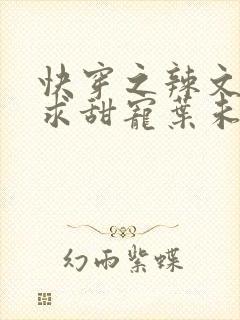 快穿之辣文
求甜宠葉未
幻雨紫蝶